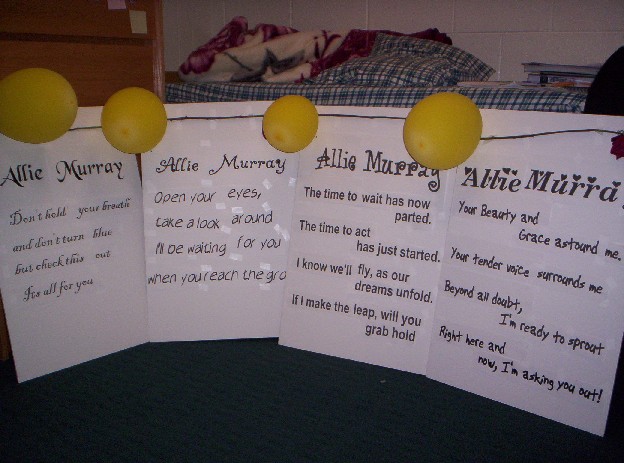 Allie Murray
Don't hold your breath
and don't turn blue
but check this out
Its all for you
Allie Murray
Open your eyes,
take a look around
I'll be waiting for you
when you reach the gro
Allie Murray
The time to wait has now
parted.
The time to act
has just started.
I know we'll fly, as our
dreams unfold.
If I make the leap, will you
grab hold
Allie Murra
Your Beauty and
Grace astound me.
Your tender voice surrounds me
Beyond all doubt,
I'm ready to sprout
Right here and
now, I'm asking you out!